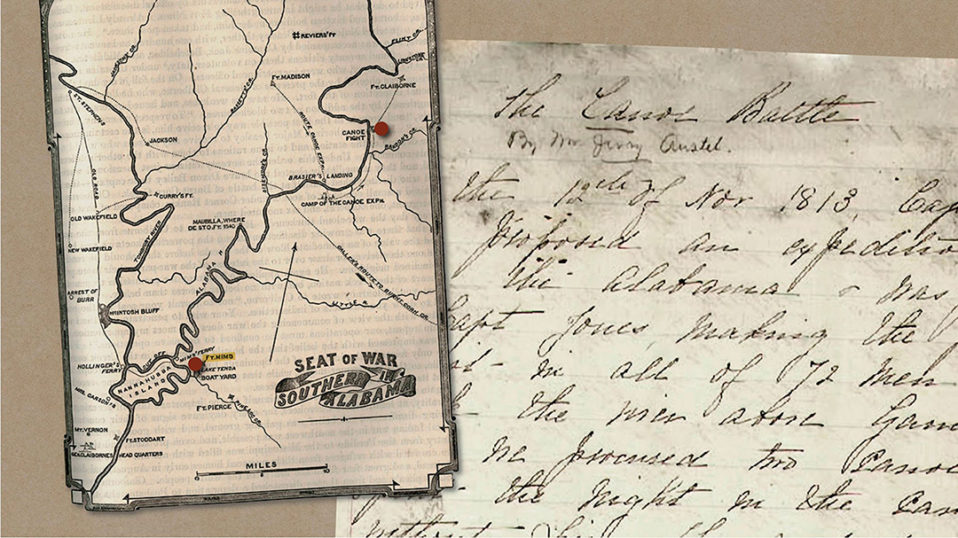 REVIERS' FT
FLINT CR.
FT. MADISON
FT. CLAIBORNE
CANOE FIGHT
ST. STEPHENS
JACKSON
OLD ROAD
BRASIER'S LANDING
CAMP OF THE CANOE EXP'N.
CURRY'S FT.
OLD WAKEFIELD
MAUBILLA, WHERE
DE SOTO, FT. 1540
NEW WAKEFIELD
ARREST OF
BURR
ALABAMA R
MCINTOSH BLUFF
MIMS' FERRY
FT. MIMS
LAKE TENSA
BOAT YARD
HOLLINGER'S
FERRY
NANNAHUBBA
ISLAND
FT. PIERCE
MT. VERNON
FT. STODDART
HEAD QUARTERS
SEAT OF WAR
IN
SOUTHERN
ALABAMA
MILES
The Canoe Battle
By Mr Jerry Austil.
the 12th of Nov 1813, Cap
proposed an expeditio
the Alabama & was
Capt Jones making the
in all of 72 men
the river above
he procured two Canoe
the night in the Can
without